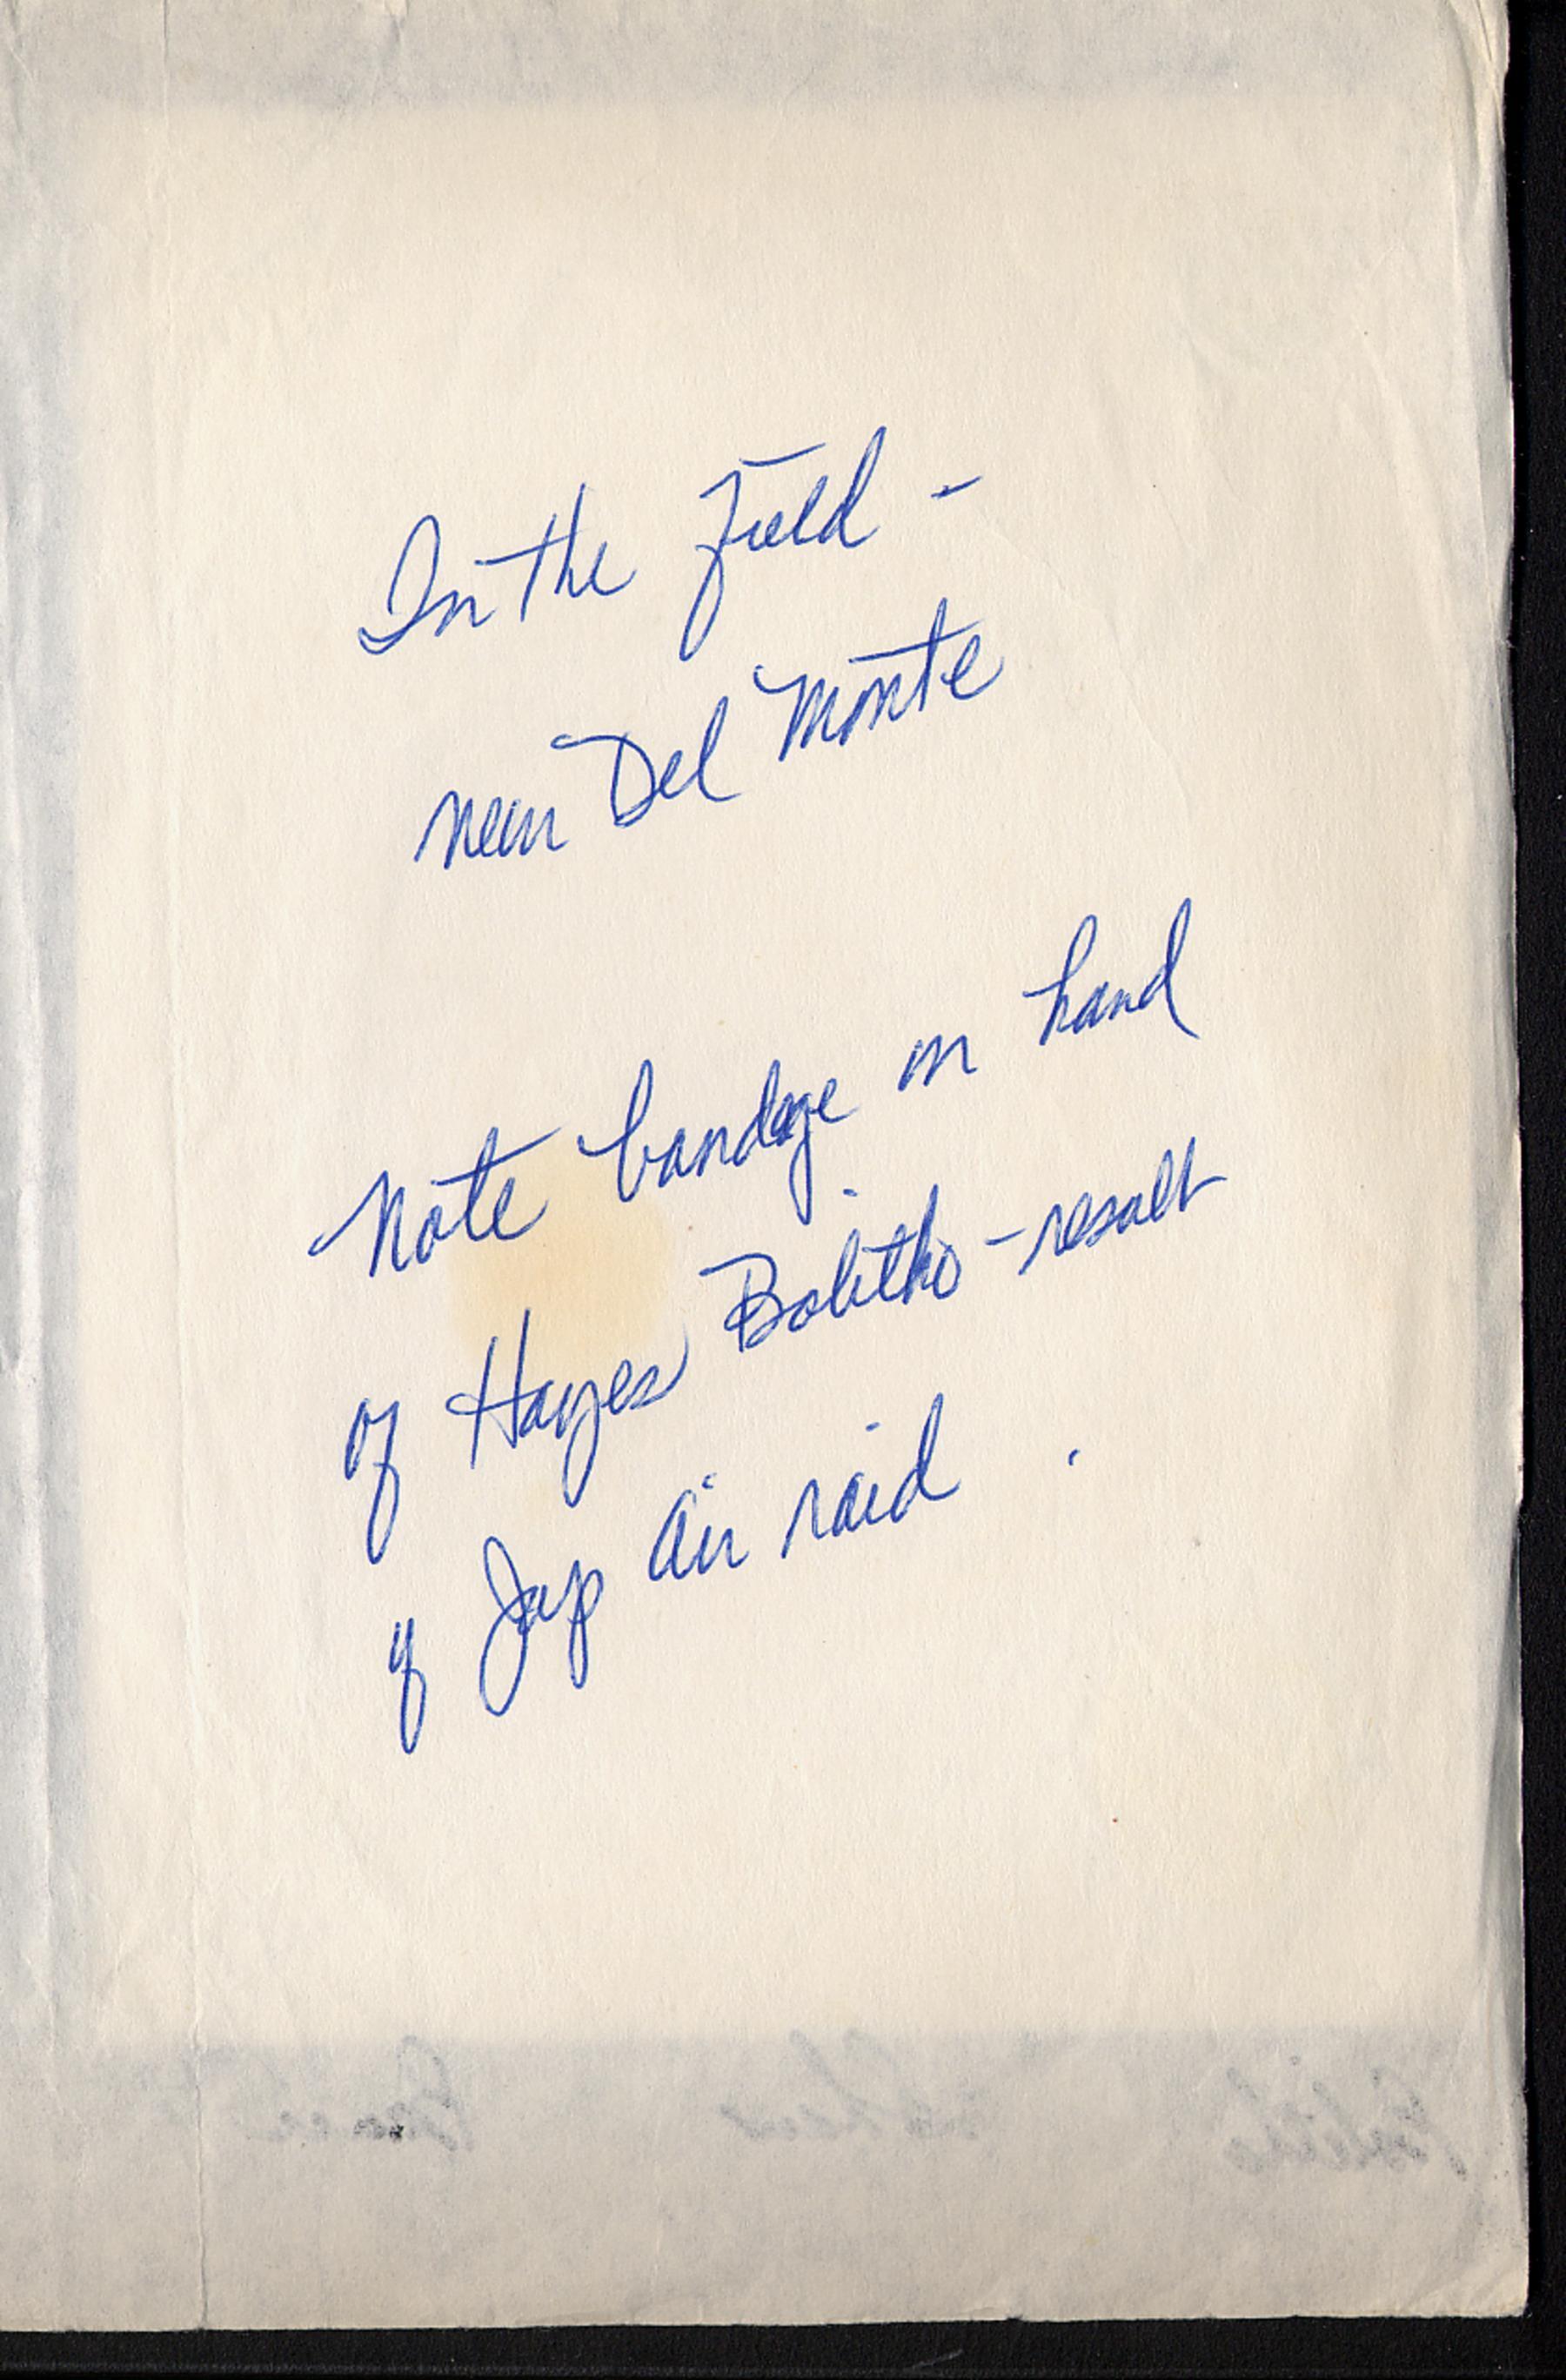 In the field -
near Del Monte
Note bandage on hand
of Hayes Bolitho - result
of Jap Air raid.